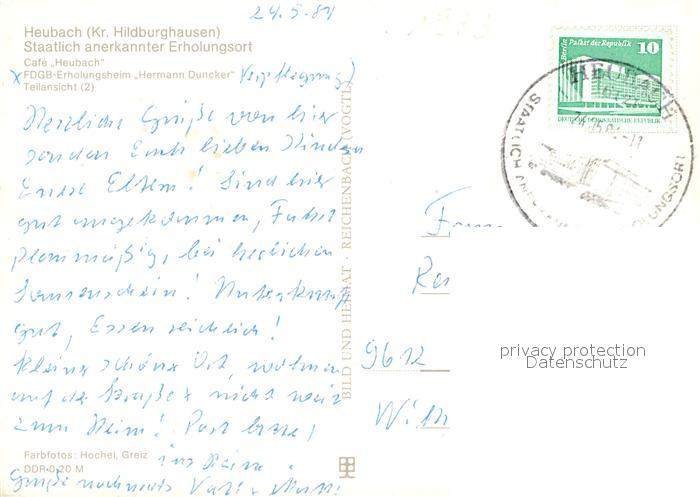 24.5.84
Heubach (Kr. Hildburghausen)
Staatlich anerkannter Erholungsort
Café „Heubach"
x FDGB-Erholungsheim „Hermann Duncker" Verpflegung)
Teilansicht (2)
Herzliche Grüße von hier
senden Euch lieben Kindern
Eure Eltern! Sind hier
gut angekommen, Fahrt
planmäßig, bei herlichen
Sonnenschein! Unterkunft
gut, Essen reichlich!
Kleiner schöner Ort, wohnen
auf der Straße x nicht weit
zum Heim! Post bitte
ins Heim.
Grüße nochmals Vati + Mutti
Farbfotos: Hochel, Greiz
DDR 0,20 M
BILD UND HEIMAT · REICHENBACH (VOGTL)
Berlin, Palast der Republik
10
DEUTSCHE DEMOKRATISCHE REPUBLIK
HEUBACH
STAATLICH
9612
privacy protection
Datenschutz